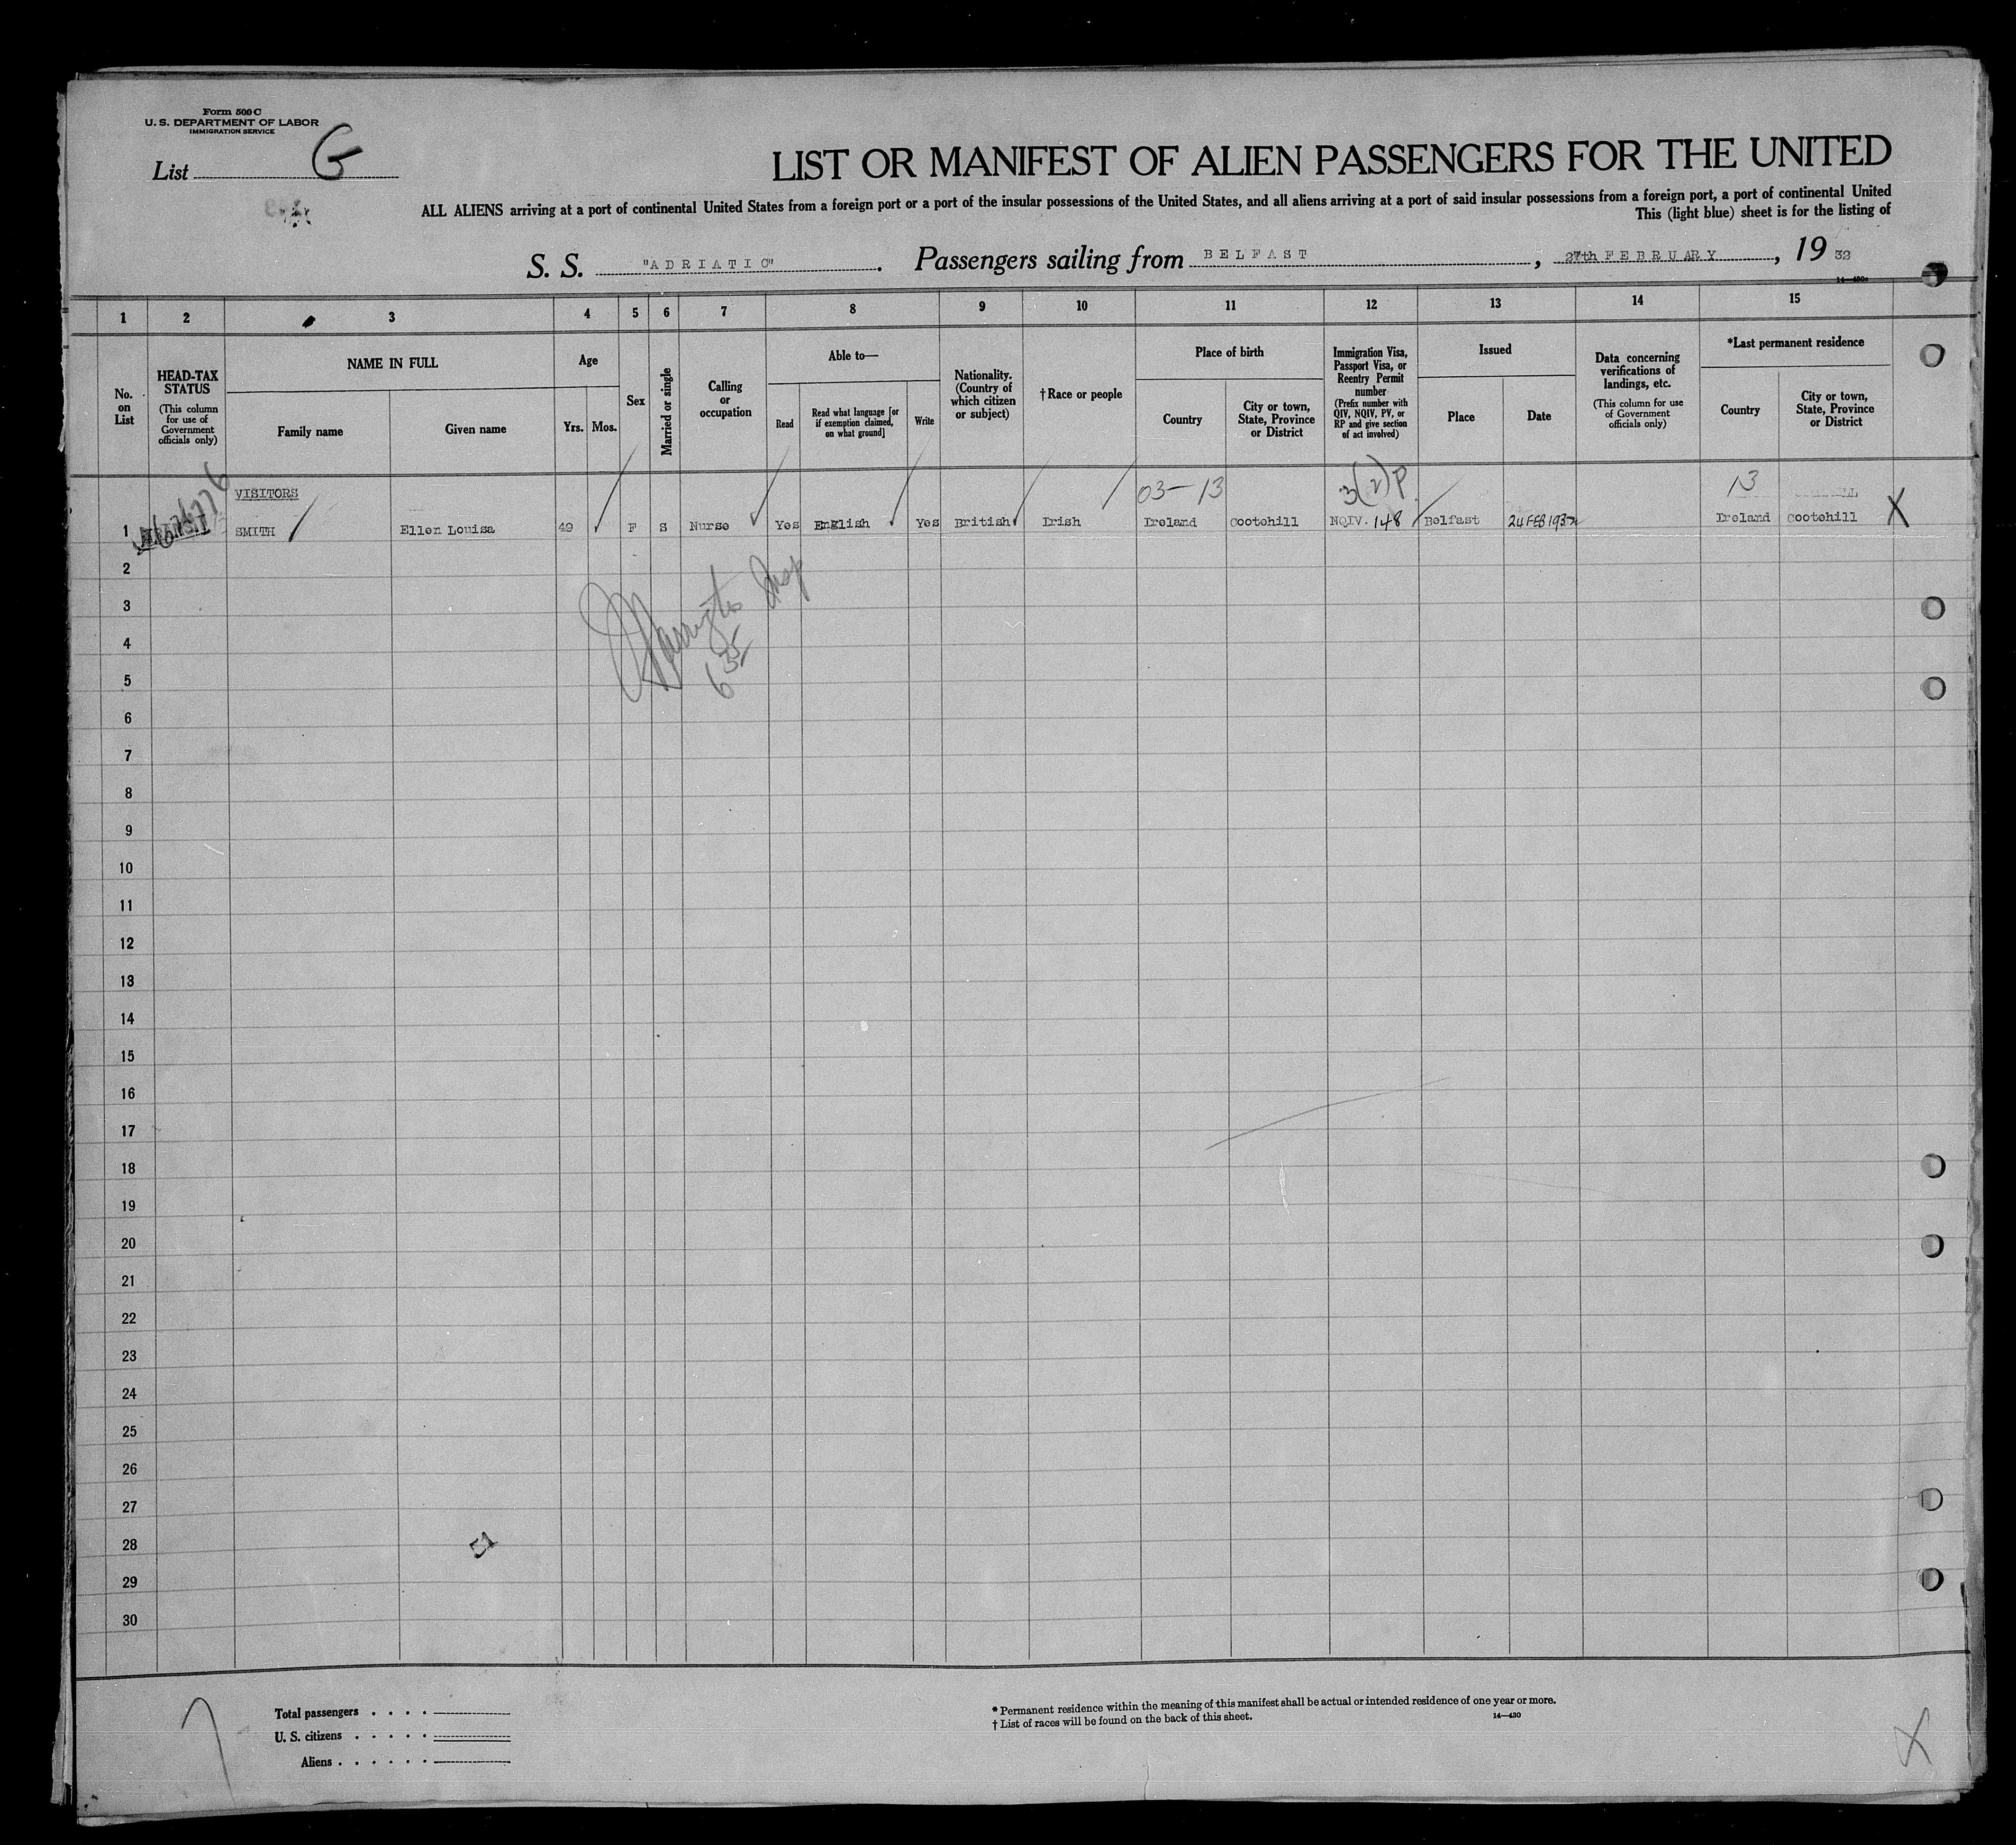 Form 500 C
U. S. DEPARTMENT OF LABOR
IMMIGRATION SERVICE
List G
LIST OR MANIFEST OF ALIEN PASSENGERS FOR THE UNITED
ALL ALIENS arriving at a port of continental United States from a foreign port or a port of the insular possessions of the United States, and all aliens arriving at a port of said insular possessions from a foreign port, a port of continental United
This (light blue) sheet is for the listing of
S. S. "ADRIATIC". Passengers sailing from BELFAST, 27th FEBRUARY, 19 32
1 2 3 4 5 6 7 8 9 10 11 12 13 14 15
No. on List
HEAD-TAX STATUS
(This column for use of Government officials only)
NAME IN FULL
Family name
Given name
Age
Yrs. Mos.
Sex
Married or single
Calling or occupation
Able to—
Read
Read what language [or if exemption claimed, on what ground]
Write
Nationality. (Country of which citizen or subject)
†Race or people
Place of birth
Country
City or town, State, Province or District
Immigration Visa, Passport Visa, or Reentry Permit number
(Prefix number with QIV, NQIV, PV, or RP and give section of act involved)
Issued
Place
Date
Data concerning verifications of landings, etc.
(This column for use of Government officials only)
*Last permanent residence
Country
City or town, State, Province or District
VISITORS
03-13
3(2)P
13
1 SMITH Ellen Louisa 49 F S Nurse Yes English Yes British Irish Ireland Cootehill NQIV. 148 Belfast 24 FEB 1932 Ireland Cootehill X
2
3
4
5
6
7
8
9
10
11
12
13
14
15
16
17
18
19
20
21
22
23
24
25
26
27
28
29
30
Total passengers . . . .
U. S. citizens . . . . .
Aliens . . . . . .
* Permanent residence within the meaning of this manifest shall be actual or intended residence of one year or more.
† List of races will be found on the back of this sheet.
14—430